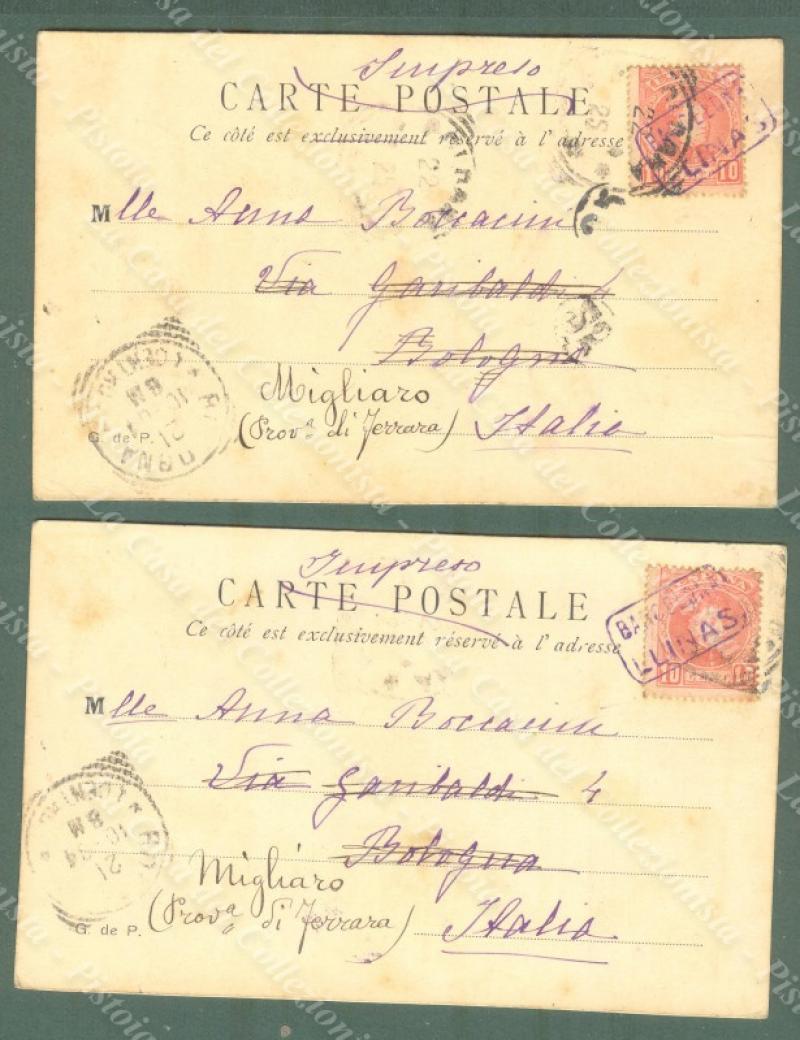 Impreso
CARTE POSTALE
Ce côté est exclusivement réservé à l'adresse
Mlle Anna Boccacini
Via Garibaldi 4
Bologna
Migliaro
(Provª di Ferrara) Italia
G. de P.
10 10
LLINAS
Impreso
CARTE POSTALE
Ce côté est exclusivement réservé à l'adresse
Mlle Anna Boccacini
Via Garibaldi 4
Bologna
Migliaro
(Provª di Ferrara) Italia
G. de P.
10 10
LLINAS
La Casa del Collezionista - Pistoia